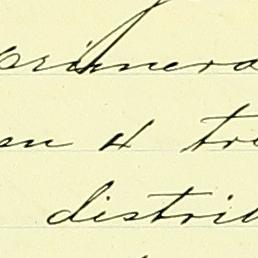 primera
en 4 tri
distrib